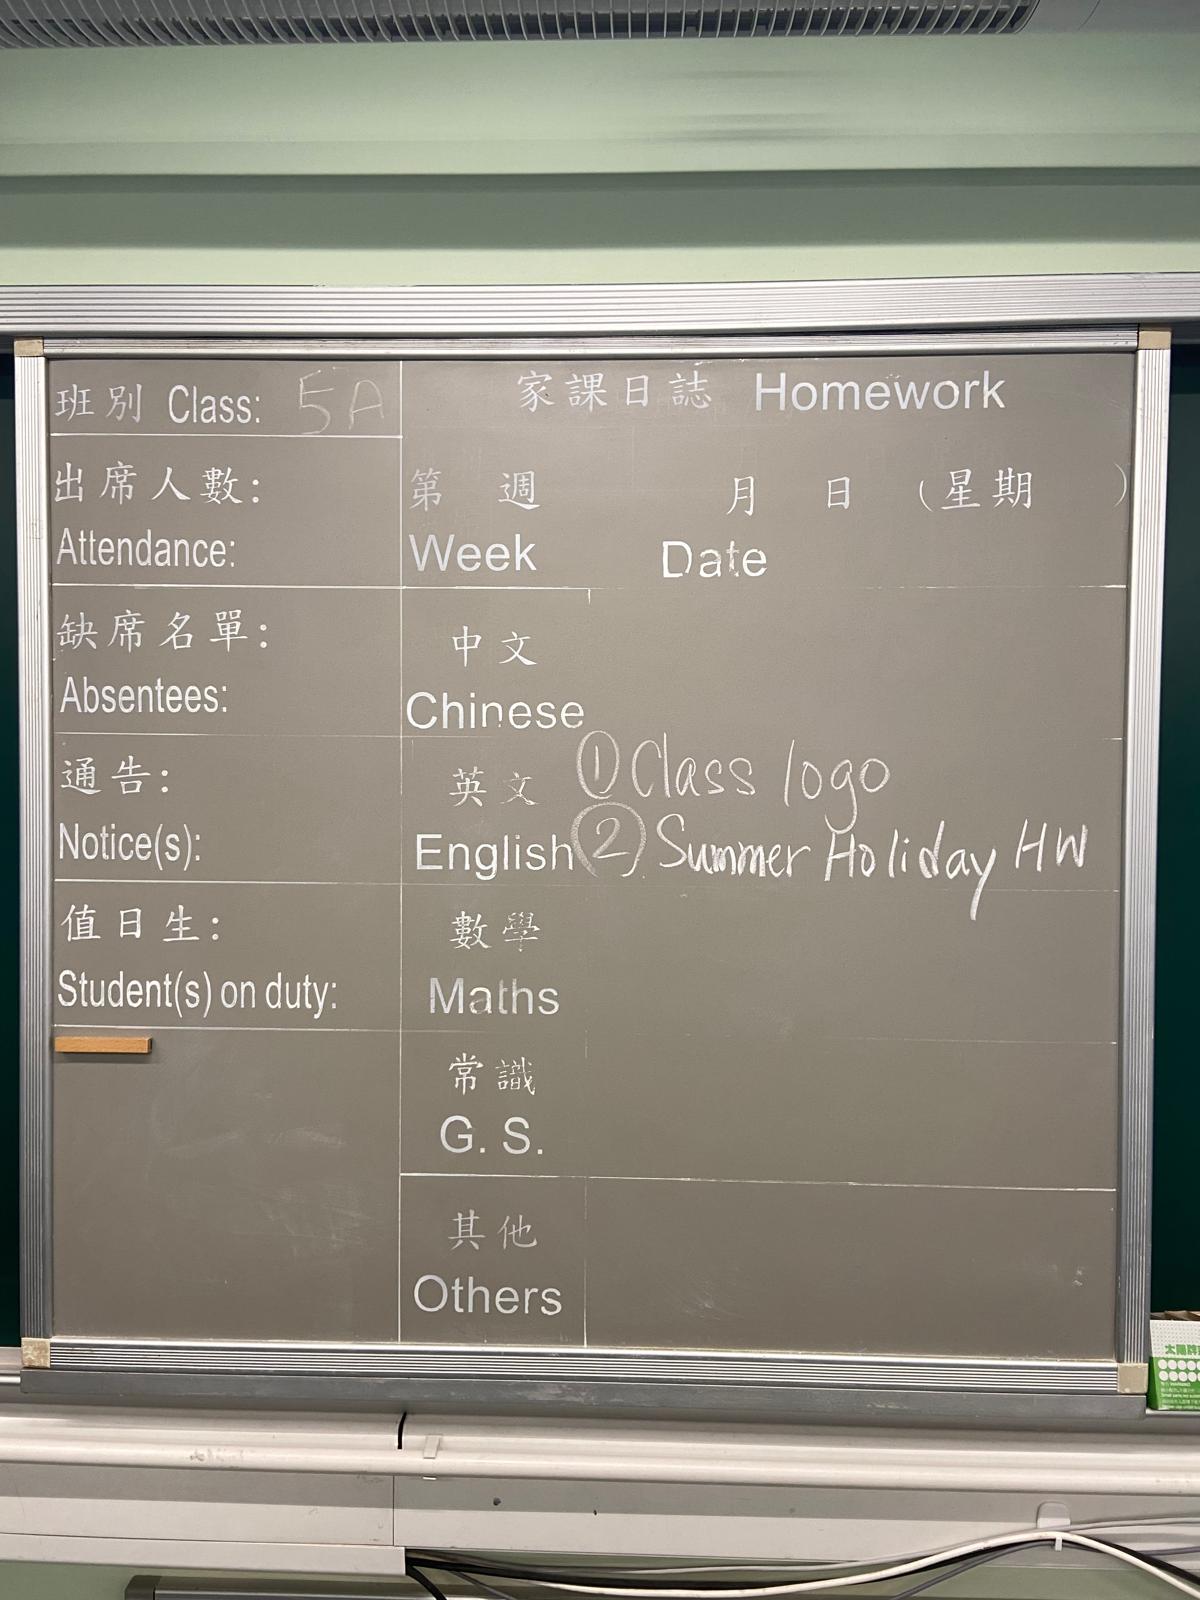 班別 Class: 5A
出席人數:
Attendance:
缺席名單:
Absentees:
通告:
Notice(s):
值日生:
Student(s) on duty:
家課日誌 Homework
第 週 月 日 (星期 )
Week Date
中文
Chinese
英文 ① Class logo
English ② Summer Holiday HW
數學
Maths
常識
G. S.
其他
Others